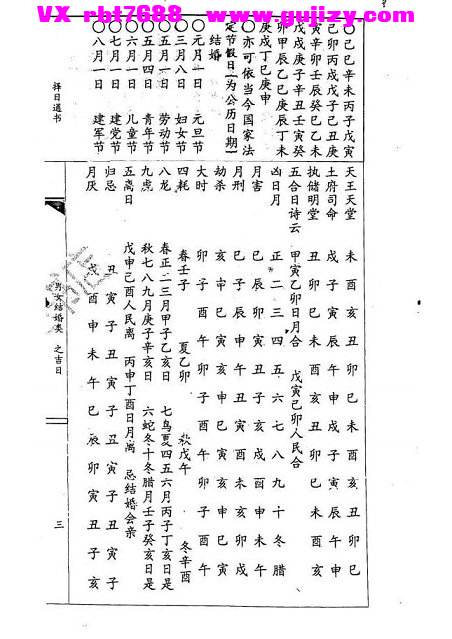 VX rbt7688 www.gujizy.com
〇己巳辛未丙子戊寅
己卯丙戌戊子己丑庚
寅辛卯壬辰癸巳乙未
戊戌庚子辛丑壬寅癸
卯甲辰乙巳庚辰丁未
庚戌丁巳庚申
〇亦可依当今国家法
定节假日(为公历日期)
结婚
〇元月一日 元旦节
〇三月八日 妇女节
〇五月一日 劳动节
〇五月四日 青年节
〇六月一日 儿童节
〇七月一日 建党节
〇八月一日 建军节
择日通书
天王天堂 未酉亥丑卯巳未酉亥丑卯巳
土府司命 戌子寅辰午申戌子寅辰午申
执储明堂 丑卯巳未酉亥丑卯巳未酉亥
五合日诗云 甲寅乙卯日月合 戊寅己卯人民合
凶日月 正二三四五六七八九十冬腊
月害 巳辰卯寅丑子亥戌酉申未午
月刑 巳子辰申午丑寅酉未亥卯戌
劫杀 亥申巳寅亥申巳寅亥申巳寅
大时 卯子酉午卯子酉午卯子酉午
四耗 春壬子 夏乙卯 秋戊午 冬辛酉
八龙 春正二三月甲子乙亥日 七鸟夏四五六月丙子丁亥日是
九虎 秋七八九月庚子辛亥日 六蛇冬十冬腊月壬子癸亥日是
五离日 戊申己酉人民离 丙申丁酉日月离 忌结婚会亲
归忌 丑寅子丑寅子丑寅子丑寅子
月厌 戌酉申未午巳辰卯寅丑子亥
男女结婚类 之吉日
三